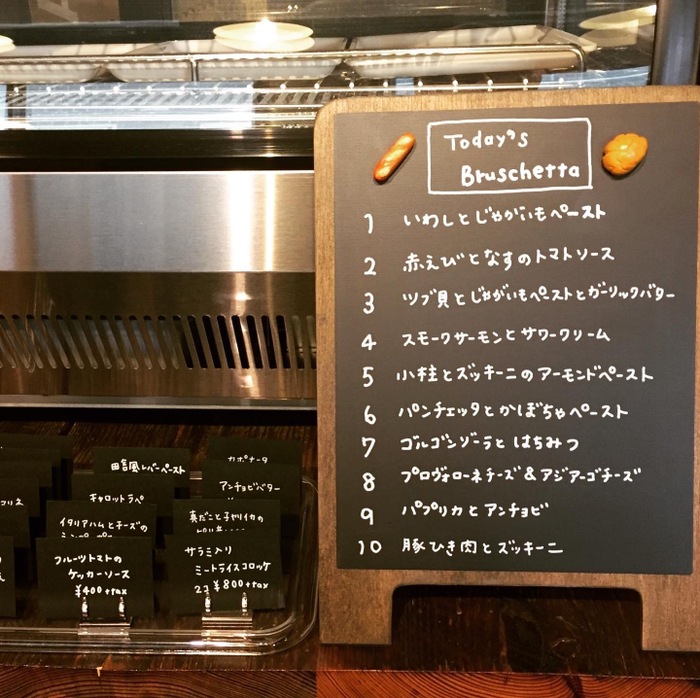 Today's
Bruschetta
1 いわしとじゃがいもペースト
2 赤えびとなすのトマトソース
3 ツブ貝とじゃがいもペーストとガーリックバター
4 スモークサーモンとサワークリーム
5 小柱とズッキーニのアーモンドペースト
6 パンチェッタとかぼちゃペースト
7 ゴルゴンゾーラとはちみつ
8 プロヴォローネチーズ&アジアーゴチーズ
9 パプリカとアンチョビ
10 豚ひき肉とズッキーニ
田舎風レバーペースト
カポナータ
キャロットラペ
アンチョビバター
イタリアハムとチーズの
真だこと子ヤリイカの
フルーツトマトの
ケッカーソース
¥400+tax
サラミ入り
ミートライスコロッケ
2コ ¥800+tax